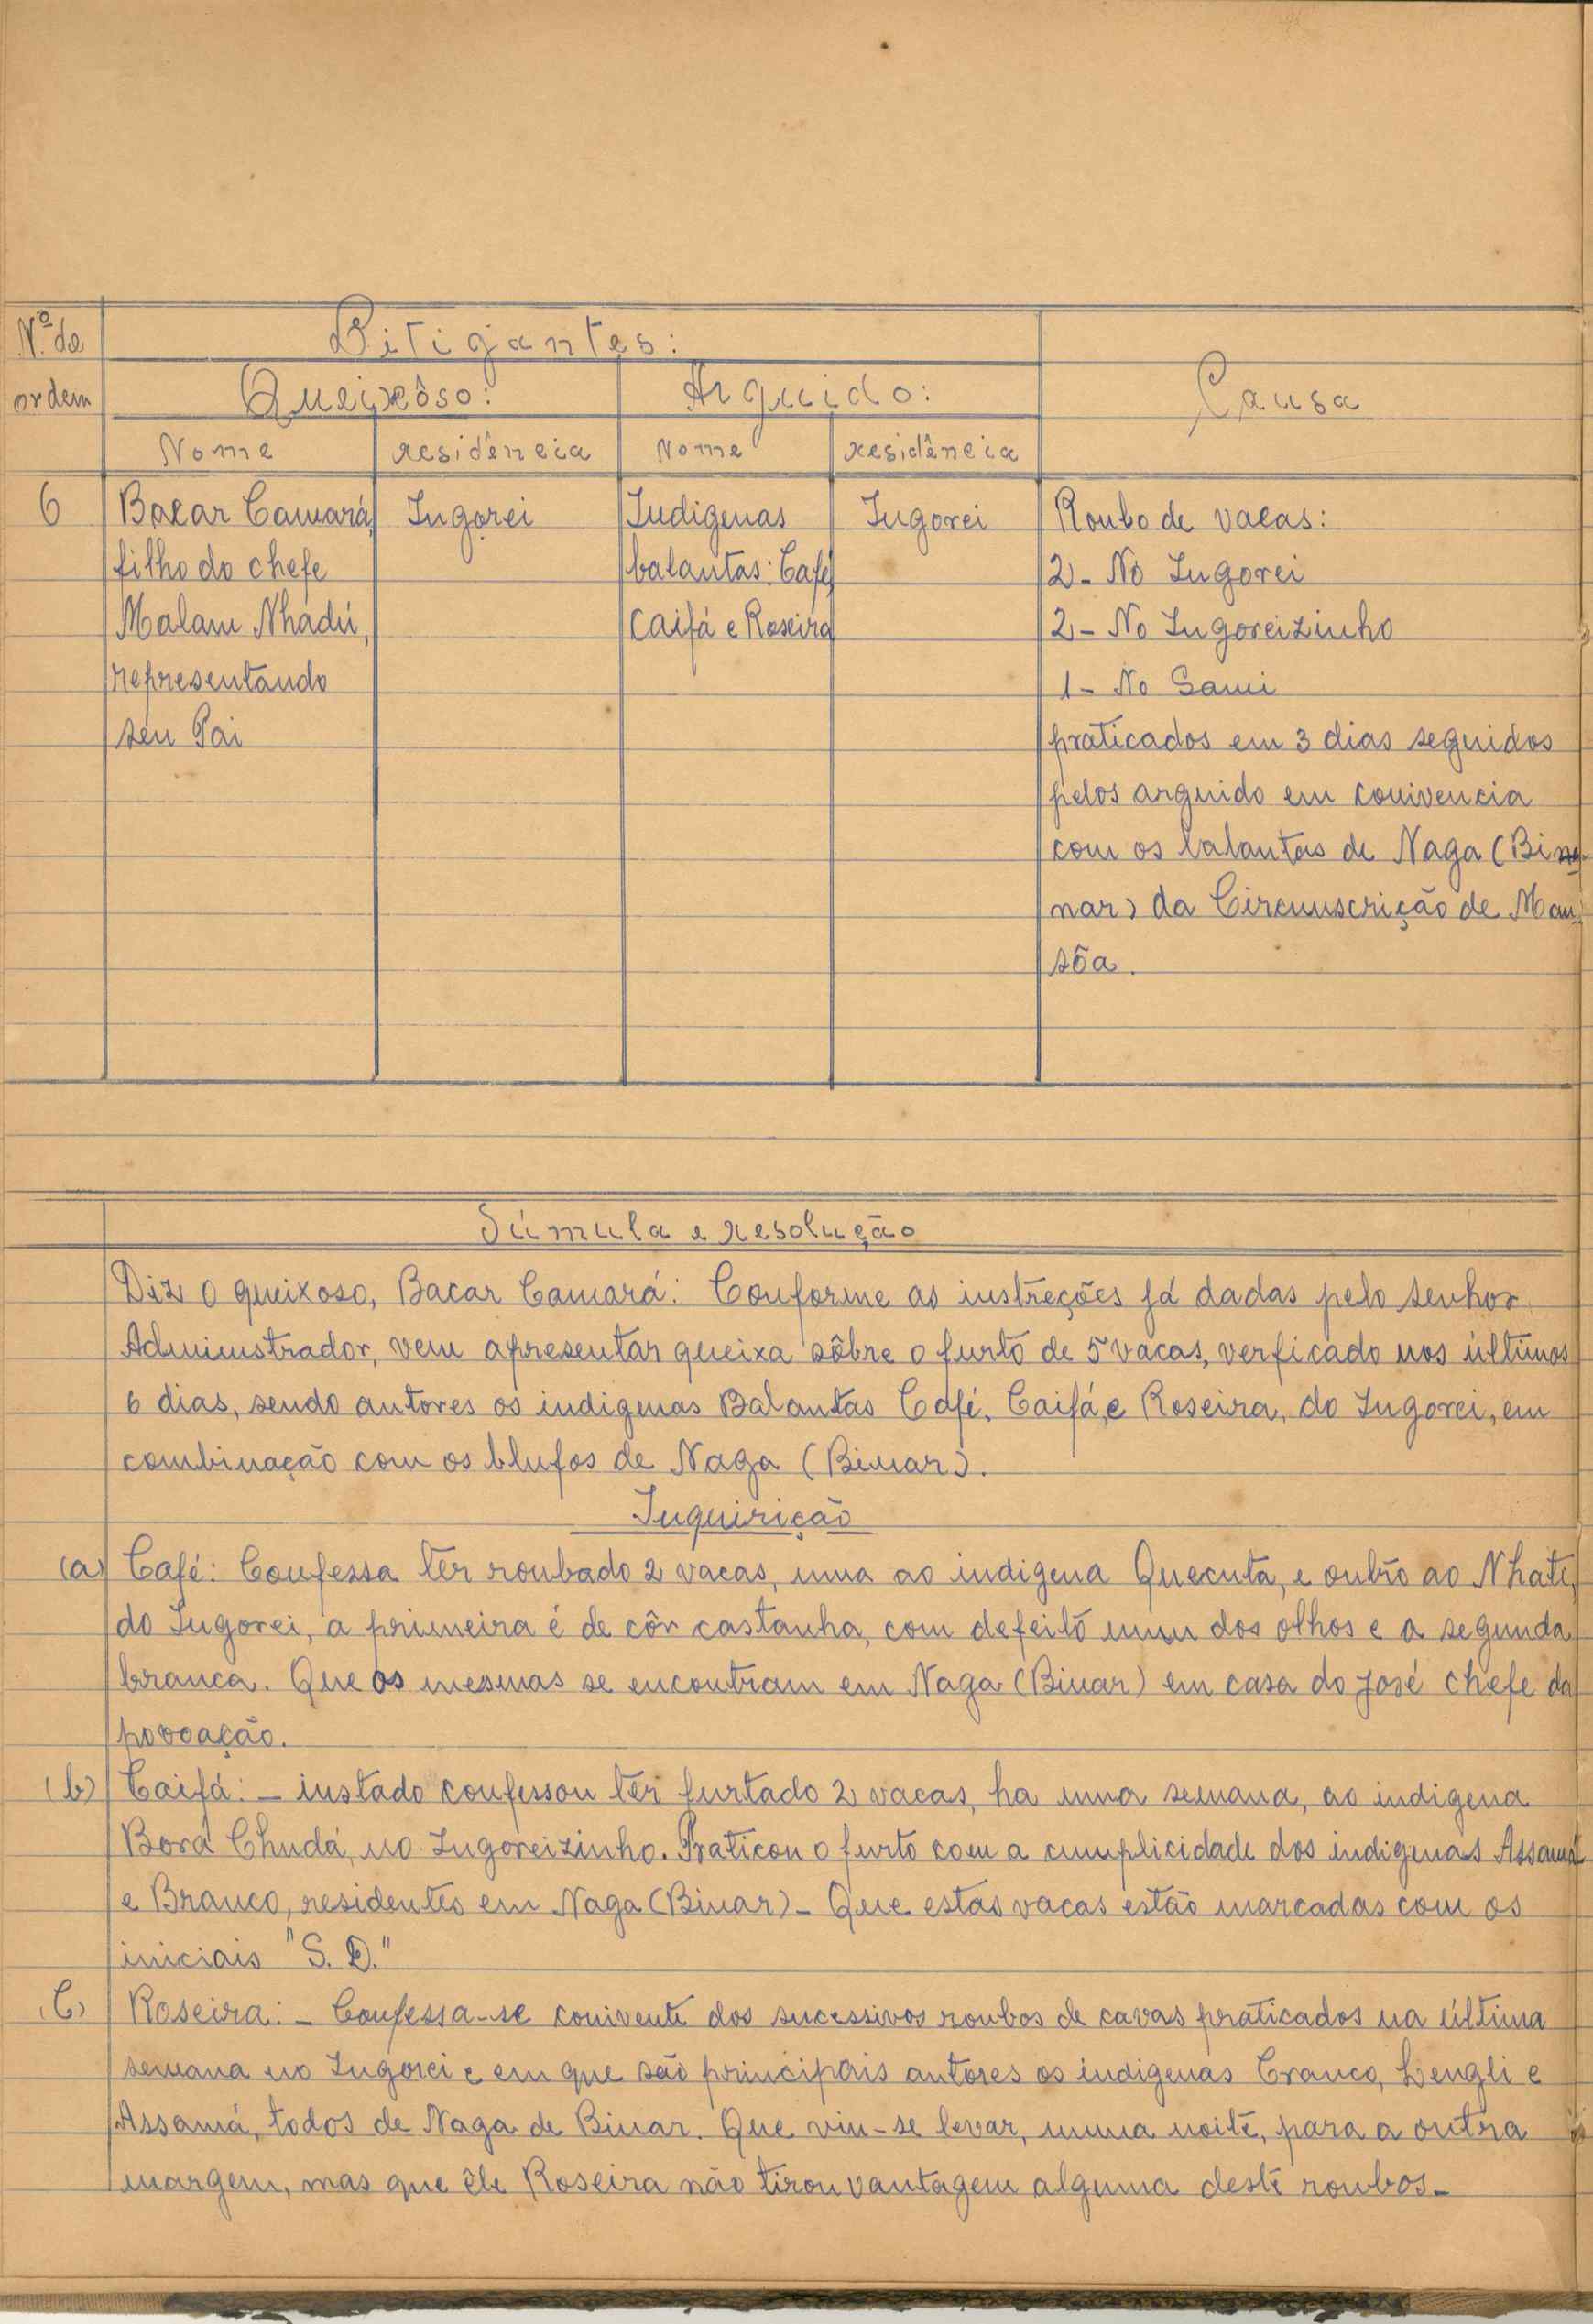 Nº de
Litigantes:
ordem
Queixôso:
Arguido:
Causa
Nome
residência
Nome
residência
6
Bacar Camará,
Ingorei
Indigenas
Ingorei
Roubo de vacas:
filho do chefe
balantas: Café,
2- No Ingorei
Malam Nhadú,
Caifá e Roseira
2- No Ingoreizinho
representando
1- No Sami
seu Pai
praticados em 3 dias seguidos
pelos arguido em conivencia
com os balantas de Naga (Bi
nar) da Circunscrição de Man-
sôa.
Súmula e resolução
Diz o queixoso, Bacar Camará: Conforme as instreções já dadas pelo senhor
Administrador, vem apresentar queixa sôbre o furto de 5 vacas, verficado nos últimos
6 dias, sendo autores os indigenas Balantas Café, Caifá, e Roseira, do Ingorei, em
combinação com os blufos de Naga (Binar).
Inquirição
(a) Café: Confessa ter roubado 2 vacas, uma ao indigena Quecuta, e outro ao Nhate,
do Ingorei, a primeira é de côr castanha, com defeito num dos olhos e a segunda
branca. Que as mesmas se encontram em Naga (Binar) em casa do José chefe da
povoação.
(b) Caifá: - instado confessou ter furtado 2 vacas, ha uma semana, ao indigena
Bora Chudá, no Ingoreizinho. Praticou o furto com a cumplicidade dos indigenas Assamá
e Branco, residentes em Naga (Binar) - Que estas vacas estão marcadas com as
iniciais "S. D."
(C) Roseira: - Confessa-se conivente dos sucessivos roubos de cavas praticados na última
semana no Ingorei e em que são principais autores os indigenas Cranco, Lengli e
Assamá, todos de Naga de Binar. Que viu-se levar, numa noite, para a outra
margem, mas que êle Roseira não tirou vantagem alguma deste roubos-